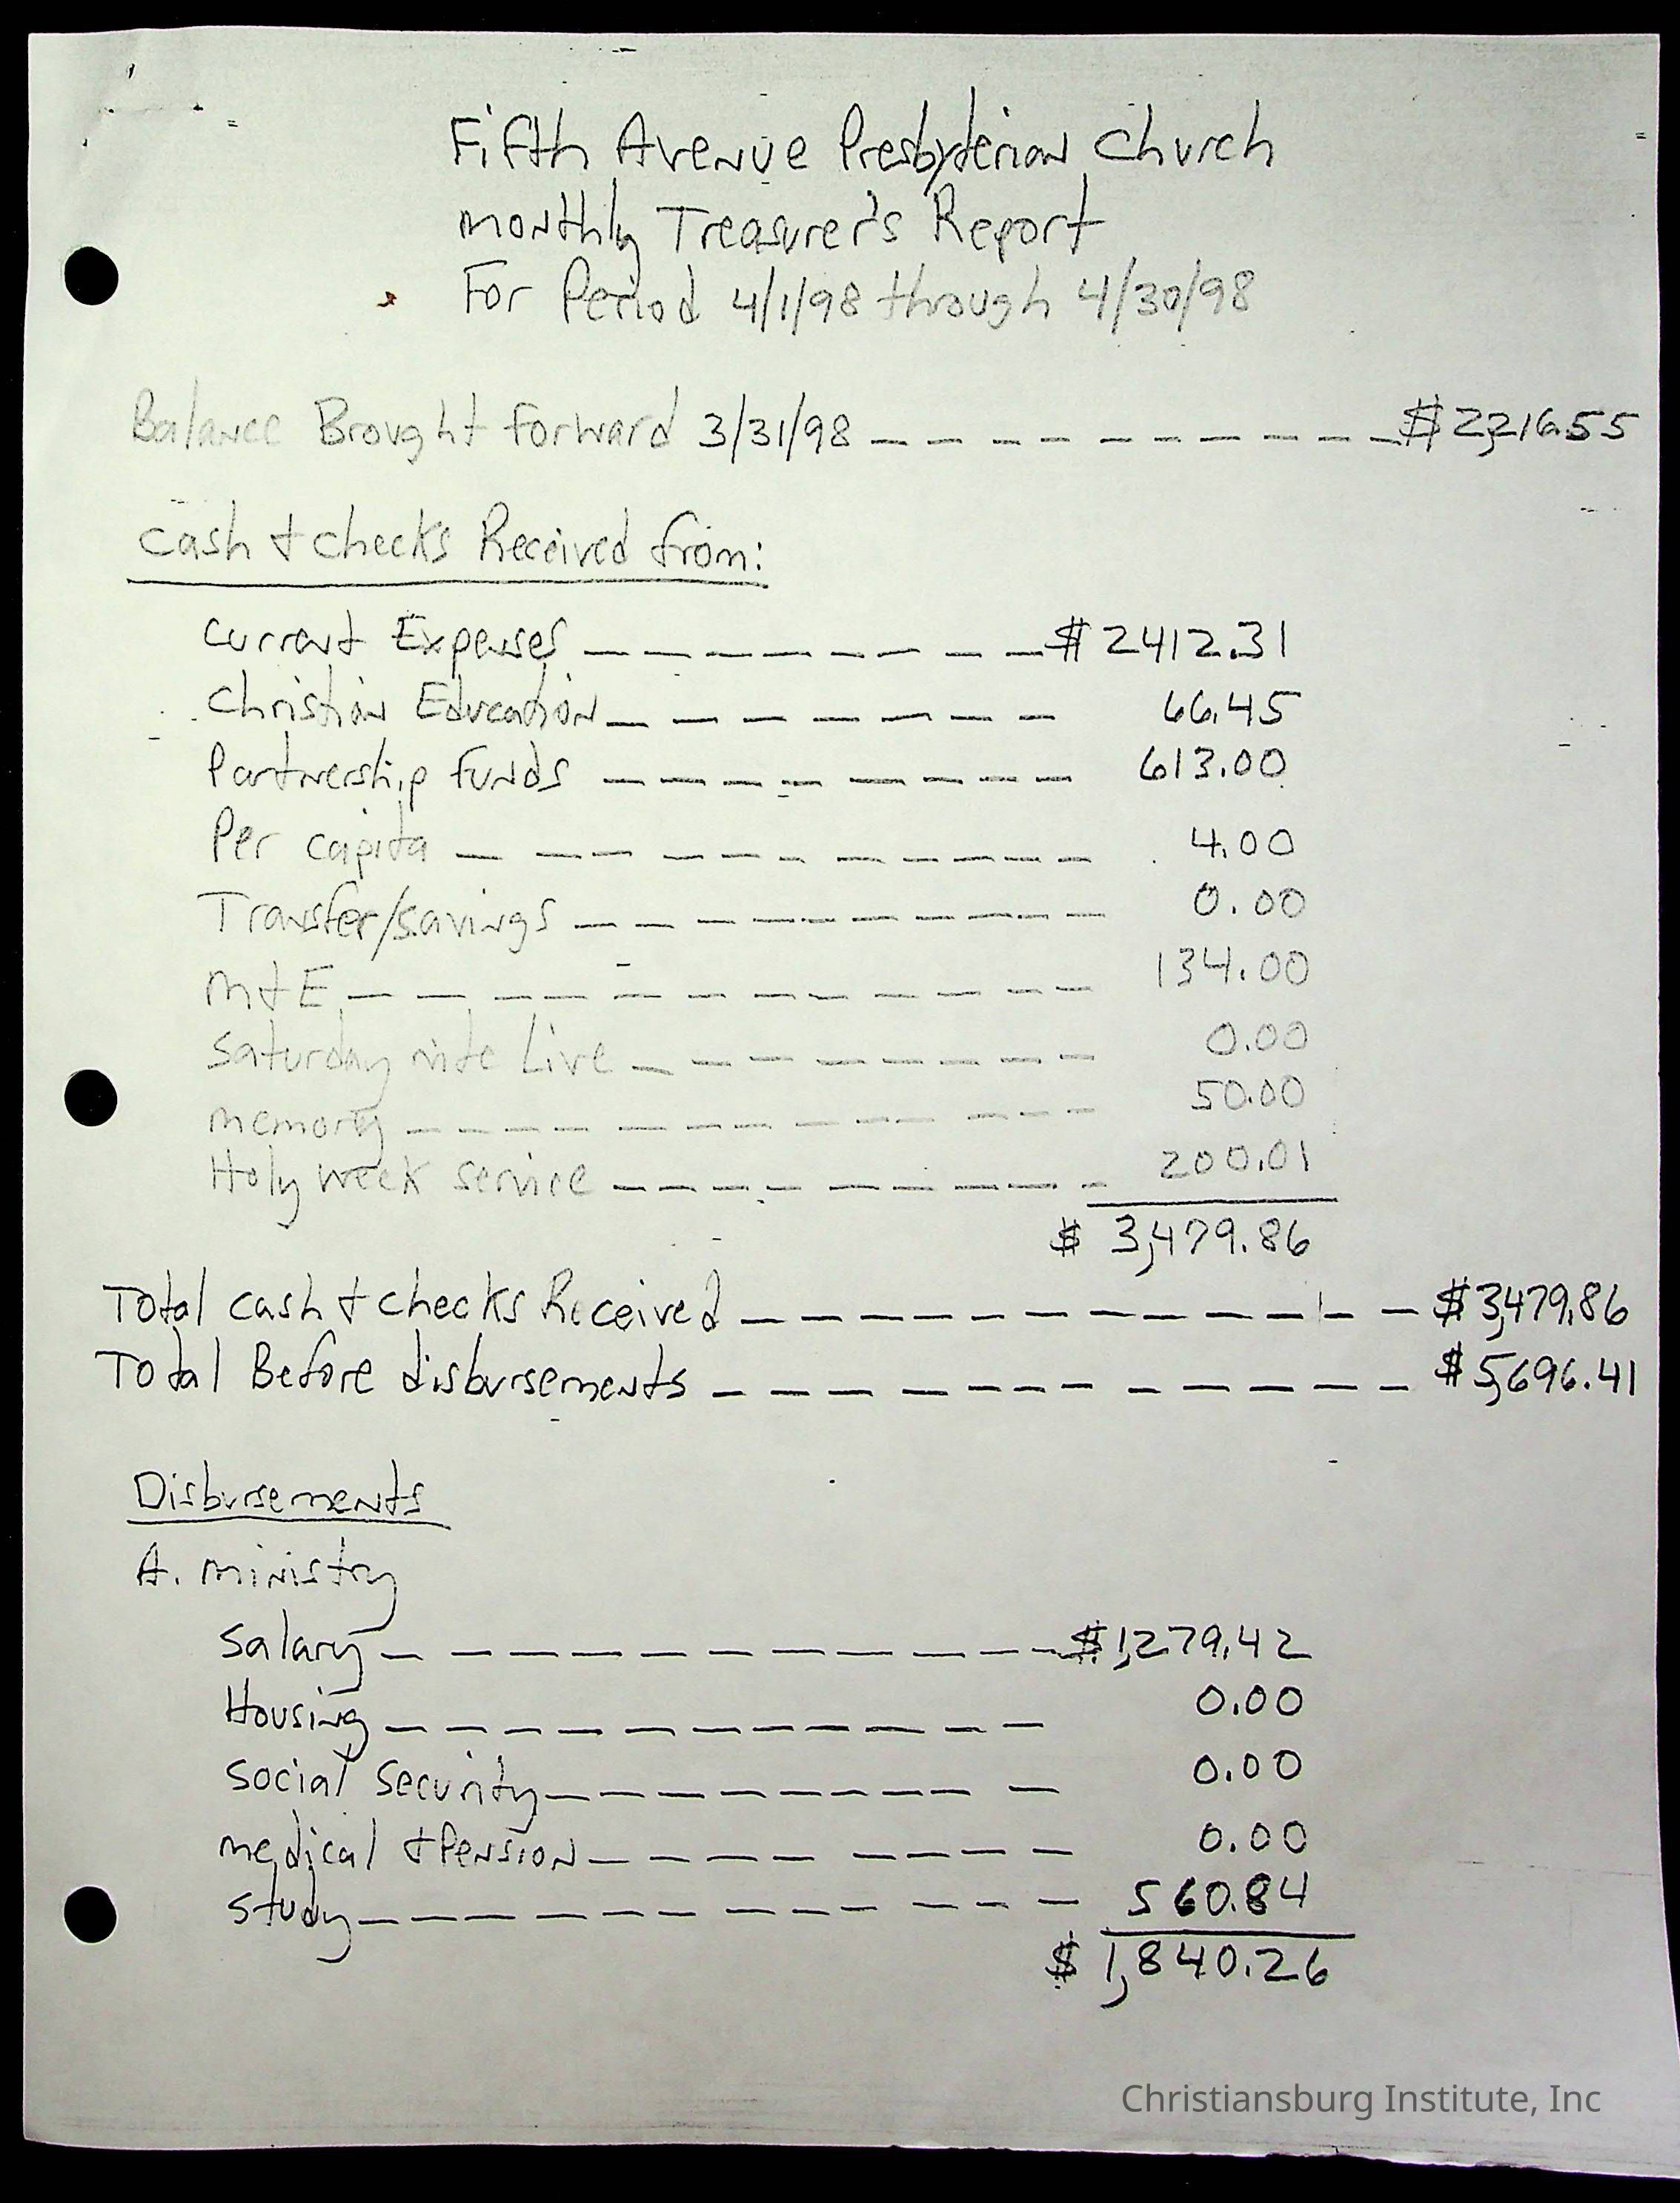 Fifth Avenue Presbyterian Church
Monthly Treasurer's Report
For Period 4/1/98 through 4/30/98
Balance Brought Forward 3/31/98 — — — — — — — — — — $2,216.55
Cash & checks Received from:
Current Expenses — — — — — — — — $ 2412.31
Christian Education — — — — — — — 66.45
Partnership Funds — — — — — — — — 613.00
Per capita — — — — — — — — — 4.00
Transfer/savings — — — — — — — — 0.00
M & E — — — — — — — — — — 134.00
Saturday nite Live — — — — — — — 0.00
Memory — — — — — — — — — — 50.00
Holy week service — — — — — — — — 200.01
$ 3,479.86
Total cash & checks Received — — — — — — — — — — — $3,479.86
Total Before disbursements — — — — — — — — — — — $5,696.41
Disbursements
A. Ministry
Salary — — — — — — — — — — — $1,279.42
Housing — — — — — — — — — — — 0.00
Social Security — — — — — — — — 0.00
Medical & Pension — — — — — — — — 0.00
Study — — — — — — — — — — — 560.84
$ 1,840.26
Christiansburg Institute, Inc